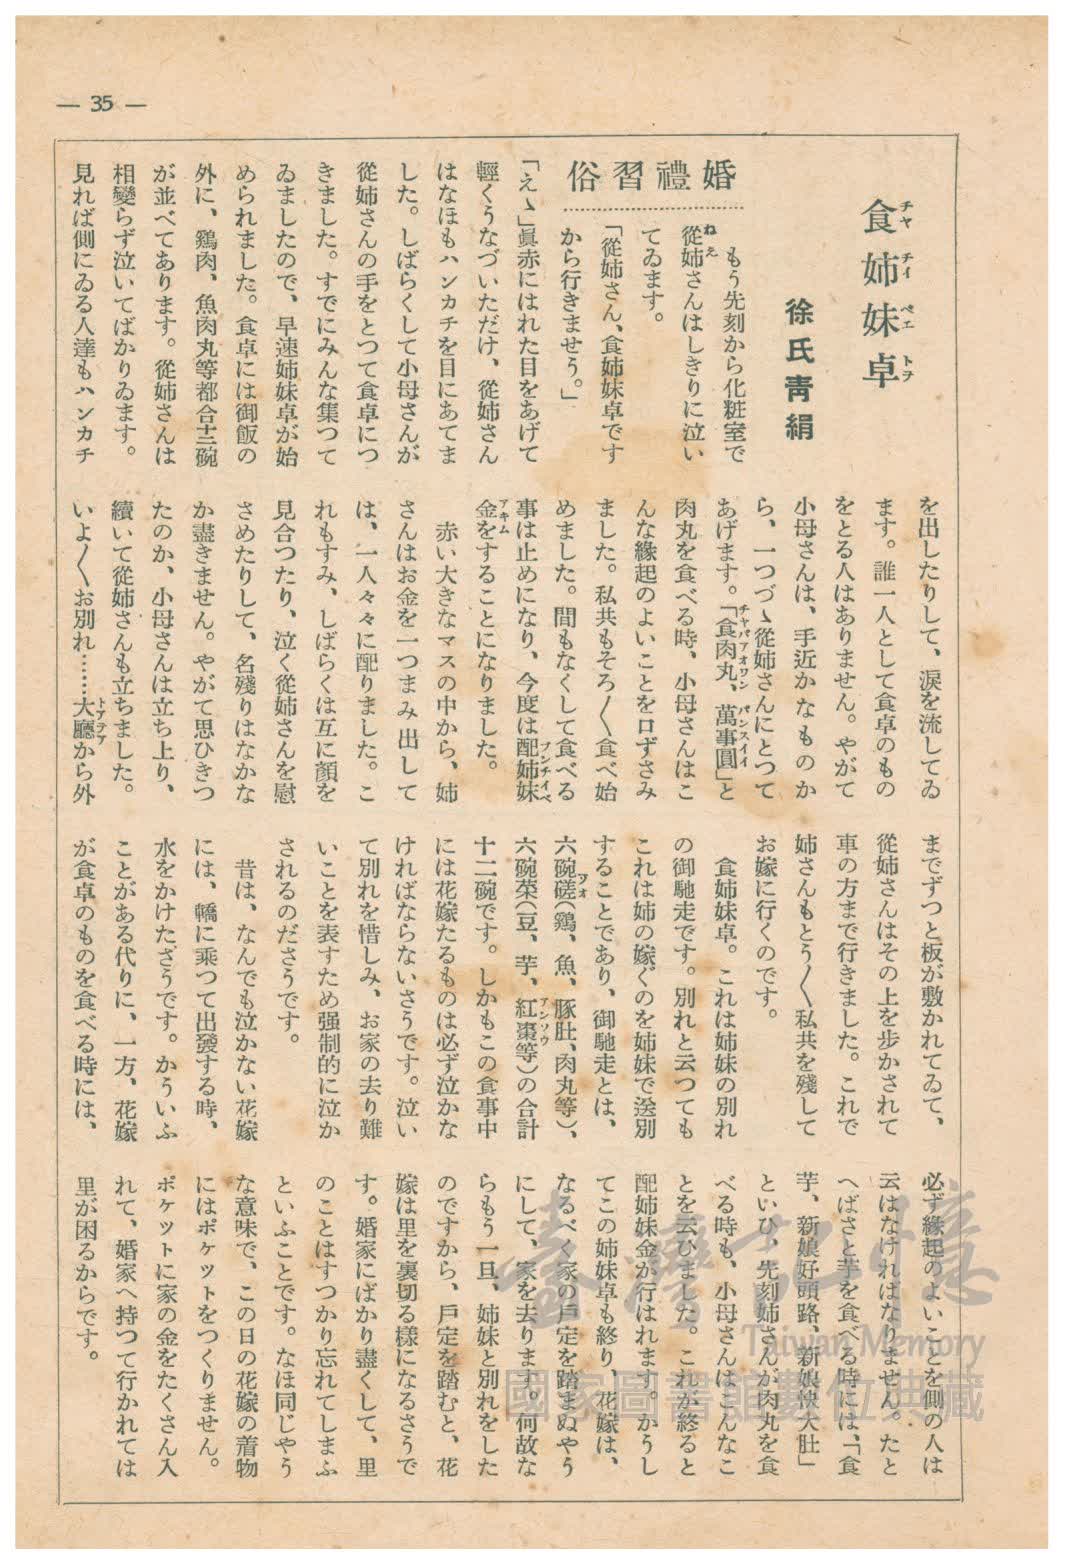 — 35 —
食姉妹卓
チヤ チイ ベエ トヲ
徐氏靑絹
婚禮習俗
もう先刻から化粧室で
從姉さんはしきりに泣い
ねえ
てゐます。
「從姉さん、食姉妹卓です
から行きませう。」
「えゝ」眞赤にはれた目をあげて
輕くうなづいただけ、從姉さん
はなほもハンカチを目にあてま
した。しばらくして小母さんが
從姉さんの手をとつて食卓につ
きました。すでにみんな集つて
ゐましたので、早速姉妹卓が始
められました。食卓には御飯の
外に、鷄肉、魚肉丸等都合十二碗
が並べてあります。從姉さんは
相變らず泣いてばかりゐます。
見れば側にゐる人達もハンカチ
を出したりして、淚を流してゐ
ます。誰一人として食卓のもの
をとる人はありません。やがて
小母さんは、手近かなものか
ら、一つづゝ從姉さんにとつて
あげます。「食肉丸、萬事圓」と
チヤバアオワン バンスイイ
肉丸を食べる時、小母さんはこ
んな緣起のよいことを口ずさみ
ました。私共もそろ〱食べ始
めました。間もなくして食べる
事は止めになり、今度は配姉妹
プンチイベ
金をすることになりました。
アキム
赤い大きなマスの中から、姉
さんはお金を一つまみ出して
は、一人々々に配りました。こ
れもすみ、しばらくは互に顏を
見合つたり、泣く從姉さんを慰
さめたりして、名殘りはなかな
か盡きません。やがて思ひきつ
たのか、小母さんは立ち上り、
續いて從姉さんも立ちました。
いよ〱お別れ……大廳から外
トアテア
までずつと板が敷かれてゐて、
從姉さんはその上を步かされて
車の方まで行きました。これで
姉さんもとう〱私共を殘して
お嫁に行くのです。
食姉妹卓。これは姉妹の別れ
の御馳走です。別れと云つても
これは姉の嫁ぐのを姉妹で送別
することであり、御馳走とは、
六碗磋(鷄、魚、豚肚、肉丸等)、
ツオ
六碗菜(豆、芋、紅棗等)の合計
アンソウ
十二碗です。しかもこの食事中
には花嫁たるものは必ず泣かな
ければならないさうです。泣い
て別れを惜しみ、お家の去り難
いことを表すため强制的に泣か
されるのださうです。
昔は、なんでも泣かない花嫁
には、轎に乘つて出發する時、
水をかけたさうです。かういふ
ことがある代りに、一方、花嫁
が食卓のものを食べる時には、
必ず緣起のよいことを側の人は
云はなければなりません。たと
へばさと芋を食べる時には、「食
芋、新娘好頭路、新娘快大肚」
といひ、先刻姉さんが肉丸を食
べる時も、小母さんはこんなこ
とを云ひました。これが終ると
配姉妹金が行はれます。かうし
てこの姉妹卓も終り、花嫁は、
なるべく家の戸定を踏まぬやう
にして、家を去ります。何故な
らもう一旦、姉妹と別れをした
のですから、戸定を踏むと、花
嫁は里を裏切る樣になるさうで
す。婚家にばかり盡くして、里
のことはすつかり忘れてしまふ
といふことです。なほ同じやう
な意味で、この日の花嫁の着物
にはポケツトをつくりません。
ポケツトに家の金をたくさん入
れて、婚家へ持つて行かれては
里が困るからです。
臺灣記憶
Taiwan Memory
國家圖書館數位典藏